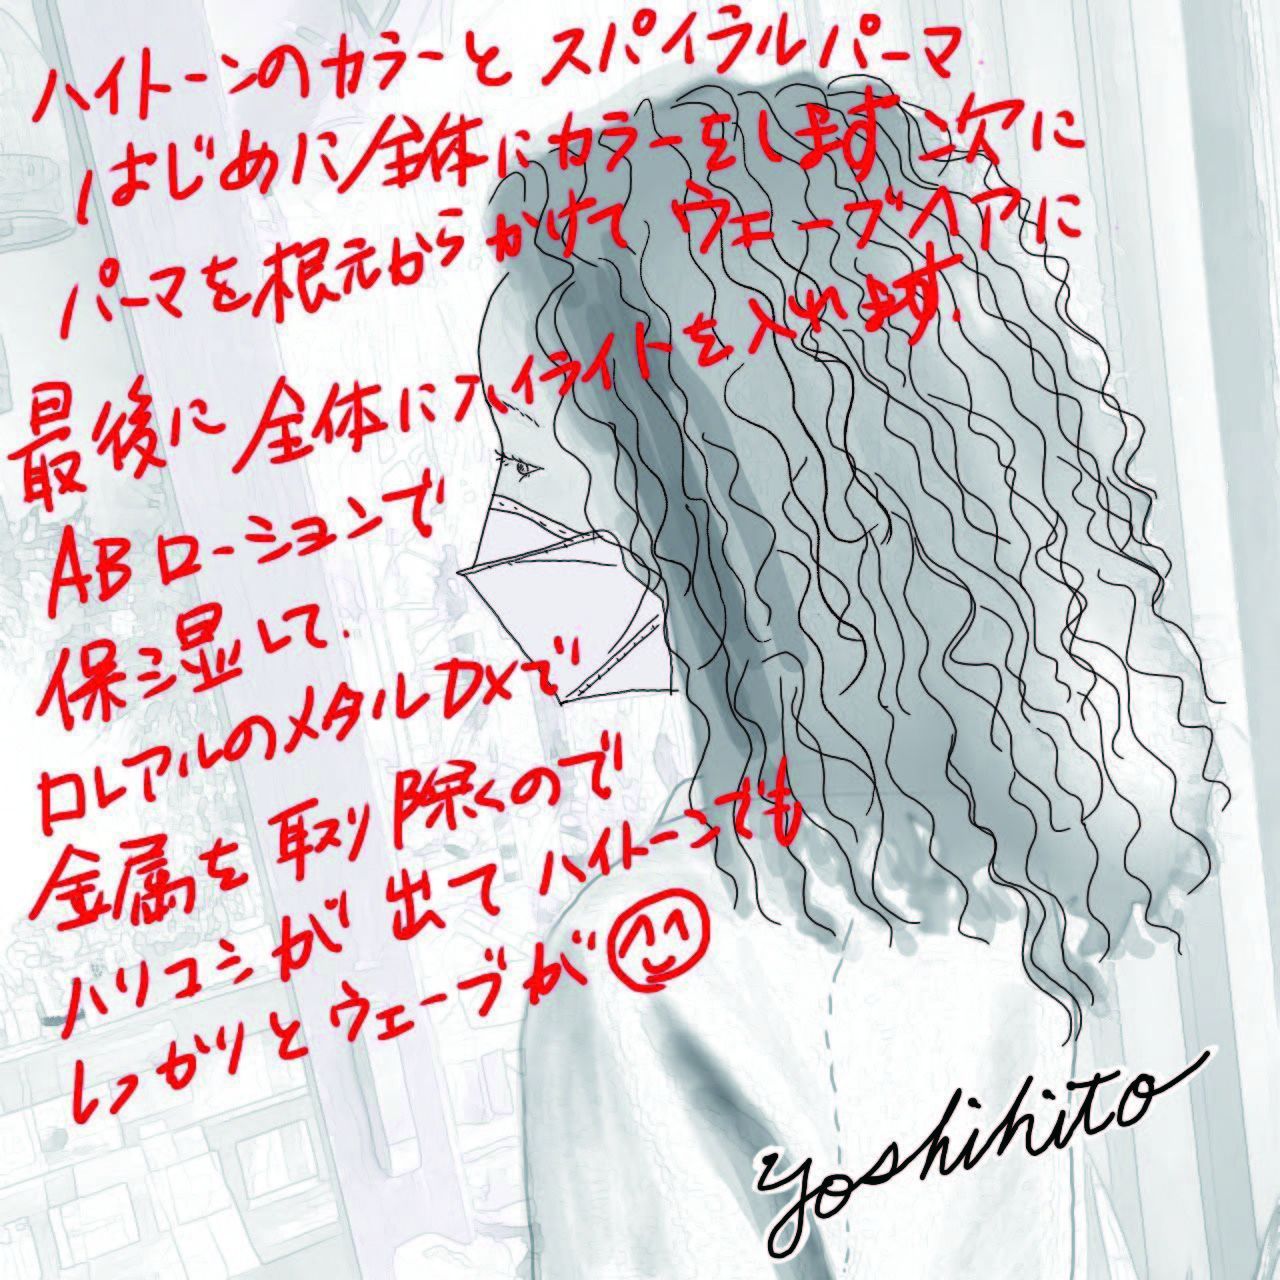 ハイトーンのカラーと スパイラルパーマ
はじめに全体にカラーをします 次に
パーマを根元からかけて ウェーブヘアに
最後に全体にハイライトを入れます.
ABローションで
保湿して.
ロレアルのメタルDXで
金属を取り除くので
ハリコシが出てハイトーンでも
しっかりとウェーブが
yoshihito